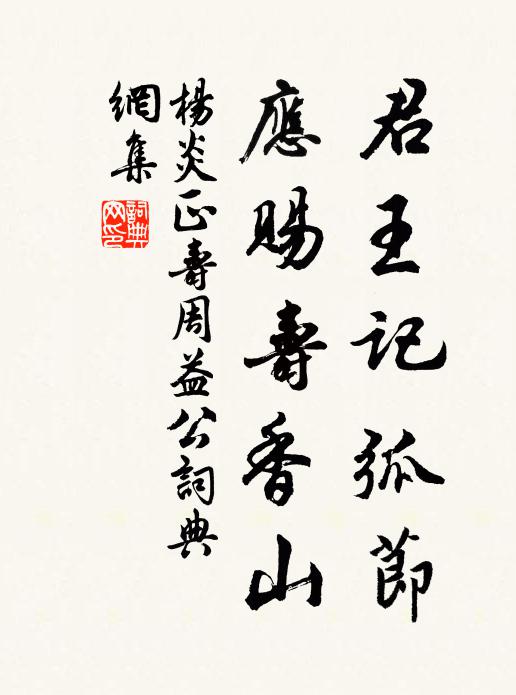 君王記孤節
應賜壽香山
楊炎正壽周益公詞典
網集
詞典
网印